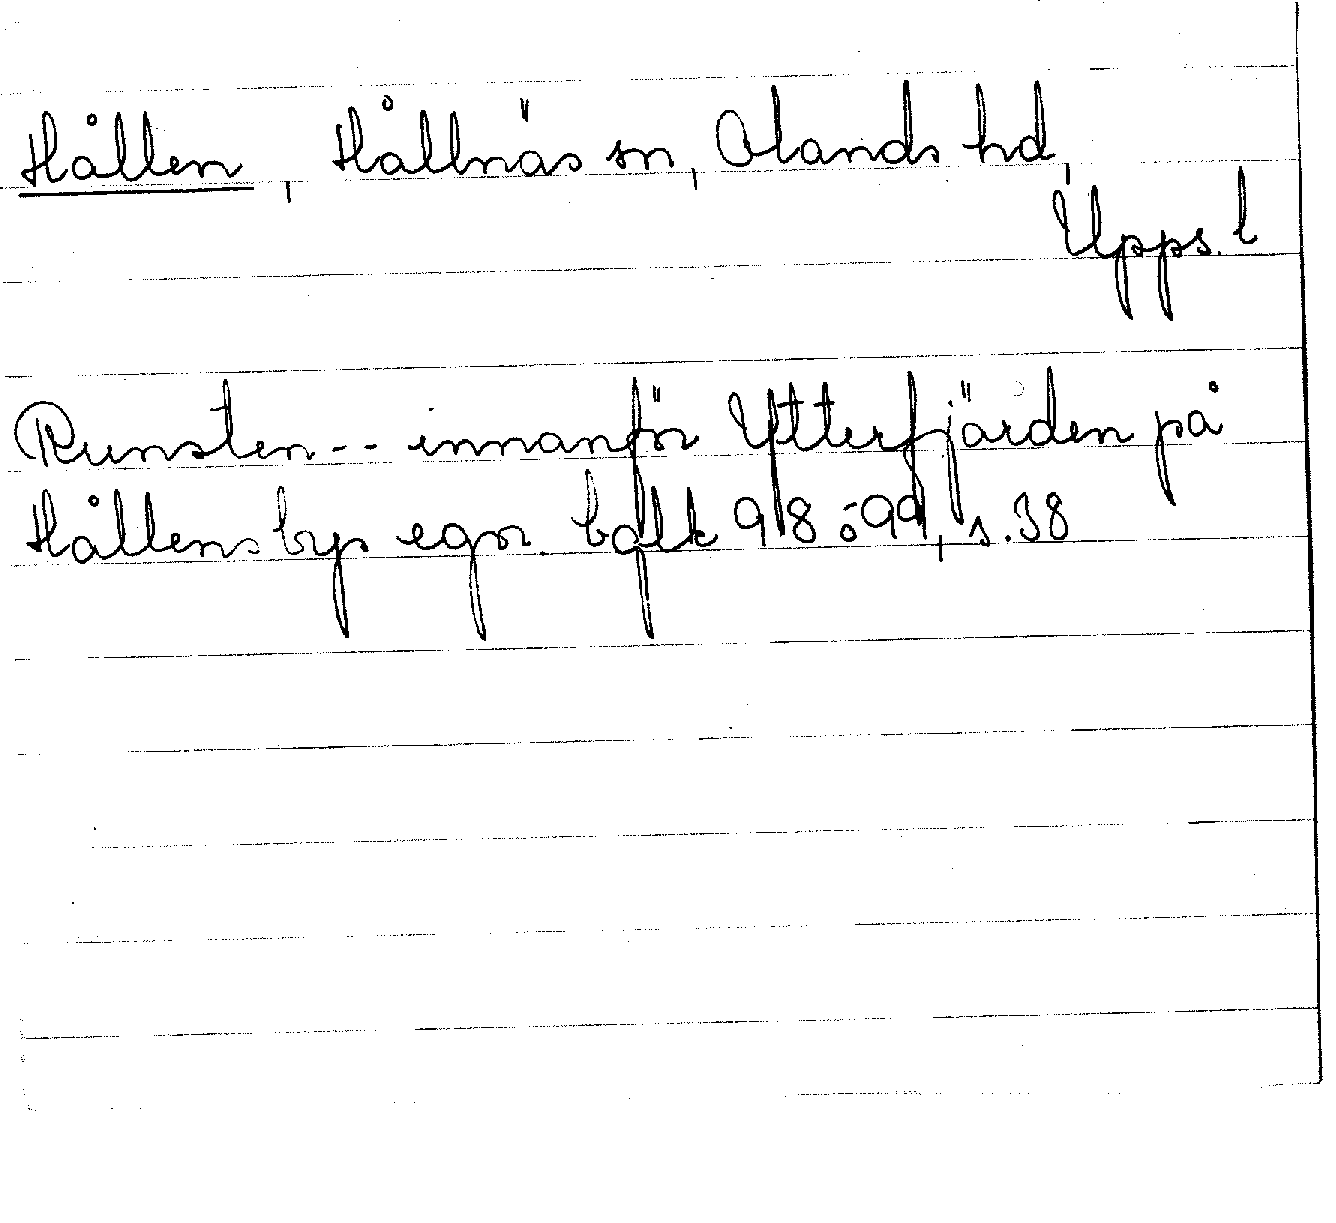 Hållen, Hållnäs sn, Olands hd,
Upps. l
Runsten -- innanför Ytterfjärden på
Hållens bys egor. balk 98 o 99, s. 38